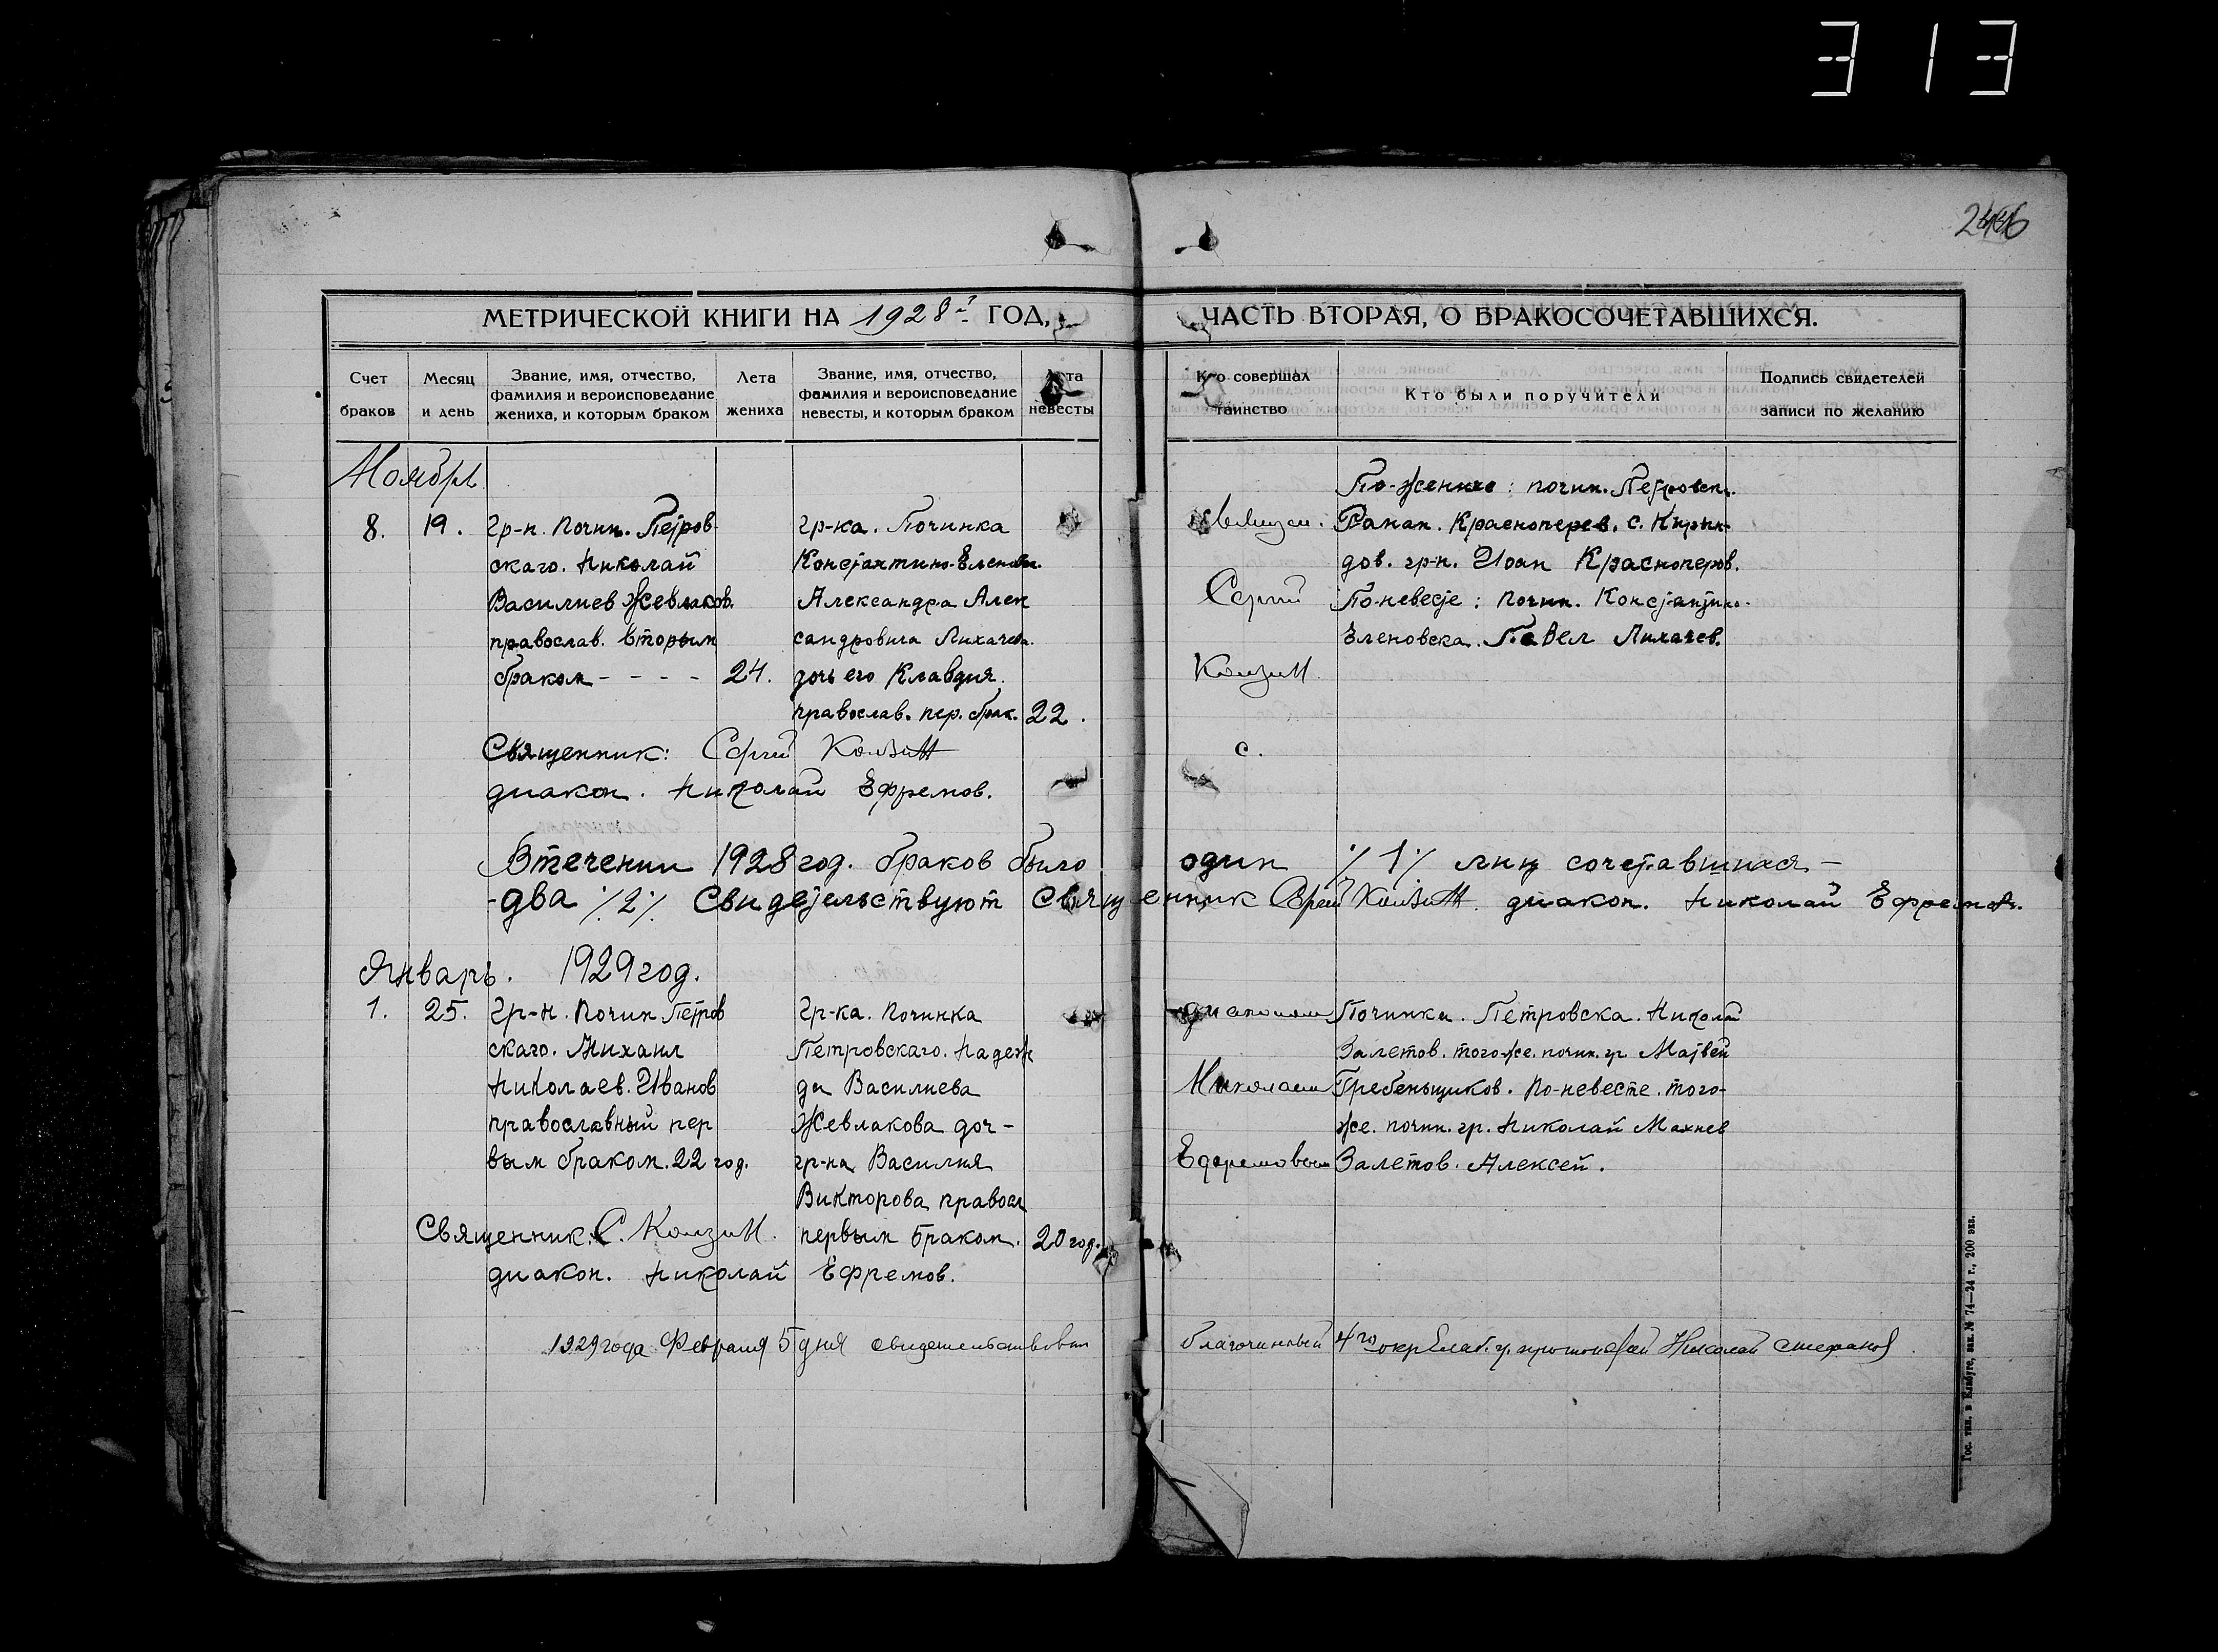 313
246
МЕТРИЧЕСКОЙ КНИГИ НА 1928 г. ГОД, ЧАСТЬ ВТОРАЯ, О БРАКОСОЧЕТАВШИХСЯ.
Счет браков
Месяц и день
Звание, имя, отчество,
фамилия и вероисповедание
жениха, и которым браком
Лета жениха
Звание, имя, отчество,
фамилия и вероисповедание
невесты, и которым браком
Лета невесты
Кто совершал таинство
Кто были поручители
Подпись свидетелей
записи по желанию
Ноябрь
8. 19.
гр-н. почин. Петров
скаго. Николай
Василиев Жевлаков.
православ. вторым
браком - - - - 24.
гр-ка. Починка
Константино-Еленовск.
Александра Алек
сандровича Лихачева.
дочь его Клавдия.
православ. пер. брак. 22.
Сергий
с.
По-женихе: почин. Петровск.
Раман. Красноперов. с. Кирин-
дов. гр-н. Иоан Красноперов.
По-невесте: почин. Константино-
Еленовска. Павел Лихачев.
Священник: Сергий
диакон. Николай Ефремов.
Втечении 1928 год. браков было один /1/ лиц сочетавшихся -
-два /2/ Свидетельствуют Священник Сергий диакон. Николай Ефремов.
Январь. 1929 год.
1. 25.
гр-н. Почин Петров
скаго. Михаил
Николаев. Иванов
православный пер
вым браком. 22 год.
гр-ка. Починка
Петровскаго. Надеж
да Василиева
Жевлакова доч-
гр-на Василия
Викторова правосл
первым браком. 20 год.
диаконом
Николаем
Ефремовым
Починка. Петровска. Николай
Залетов. того-же. почин. гр Матвей
Гребеньщиков. По-невесте. того-
же. почин. гр. Николай Махнев
Залетов. Алексей.
Священник: С.
диакон. Николай Ефремов.
1929 года Февраля 5 дня свидетельствовал благочинный 4го окр Елаб. протоиерей Николай Стефанов.
Гос. тип. в Елабуге, зак. № 74—24 г., 200 экз.